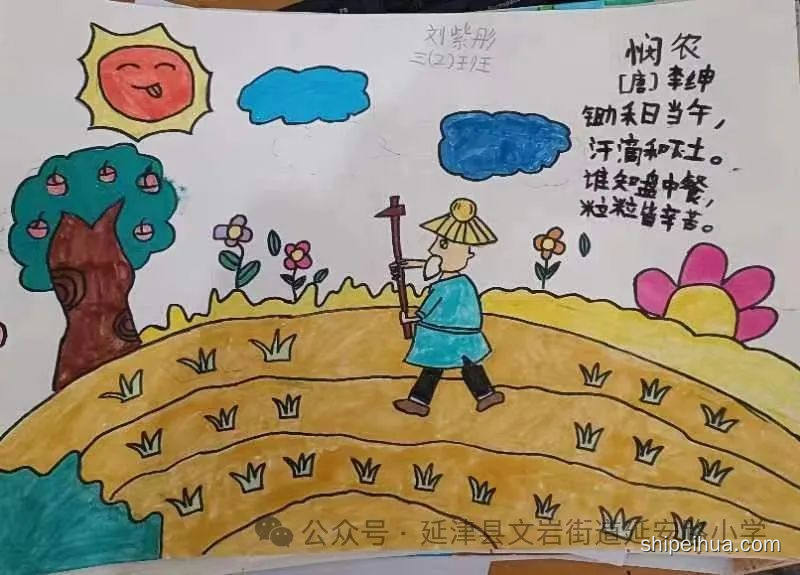 刘紫彤
三(2)班
悯农
[唐]李绅
锄禾日当午,
汗滴和下土。
谁知盘中餐,
粒粒皆辛苦。
公众号 · 延津县文岩街道延安小学
shipeihua.com